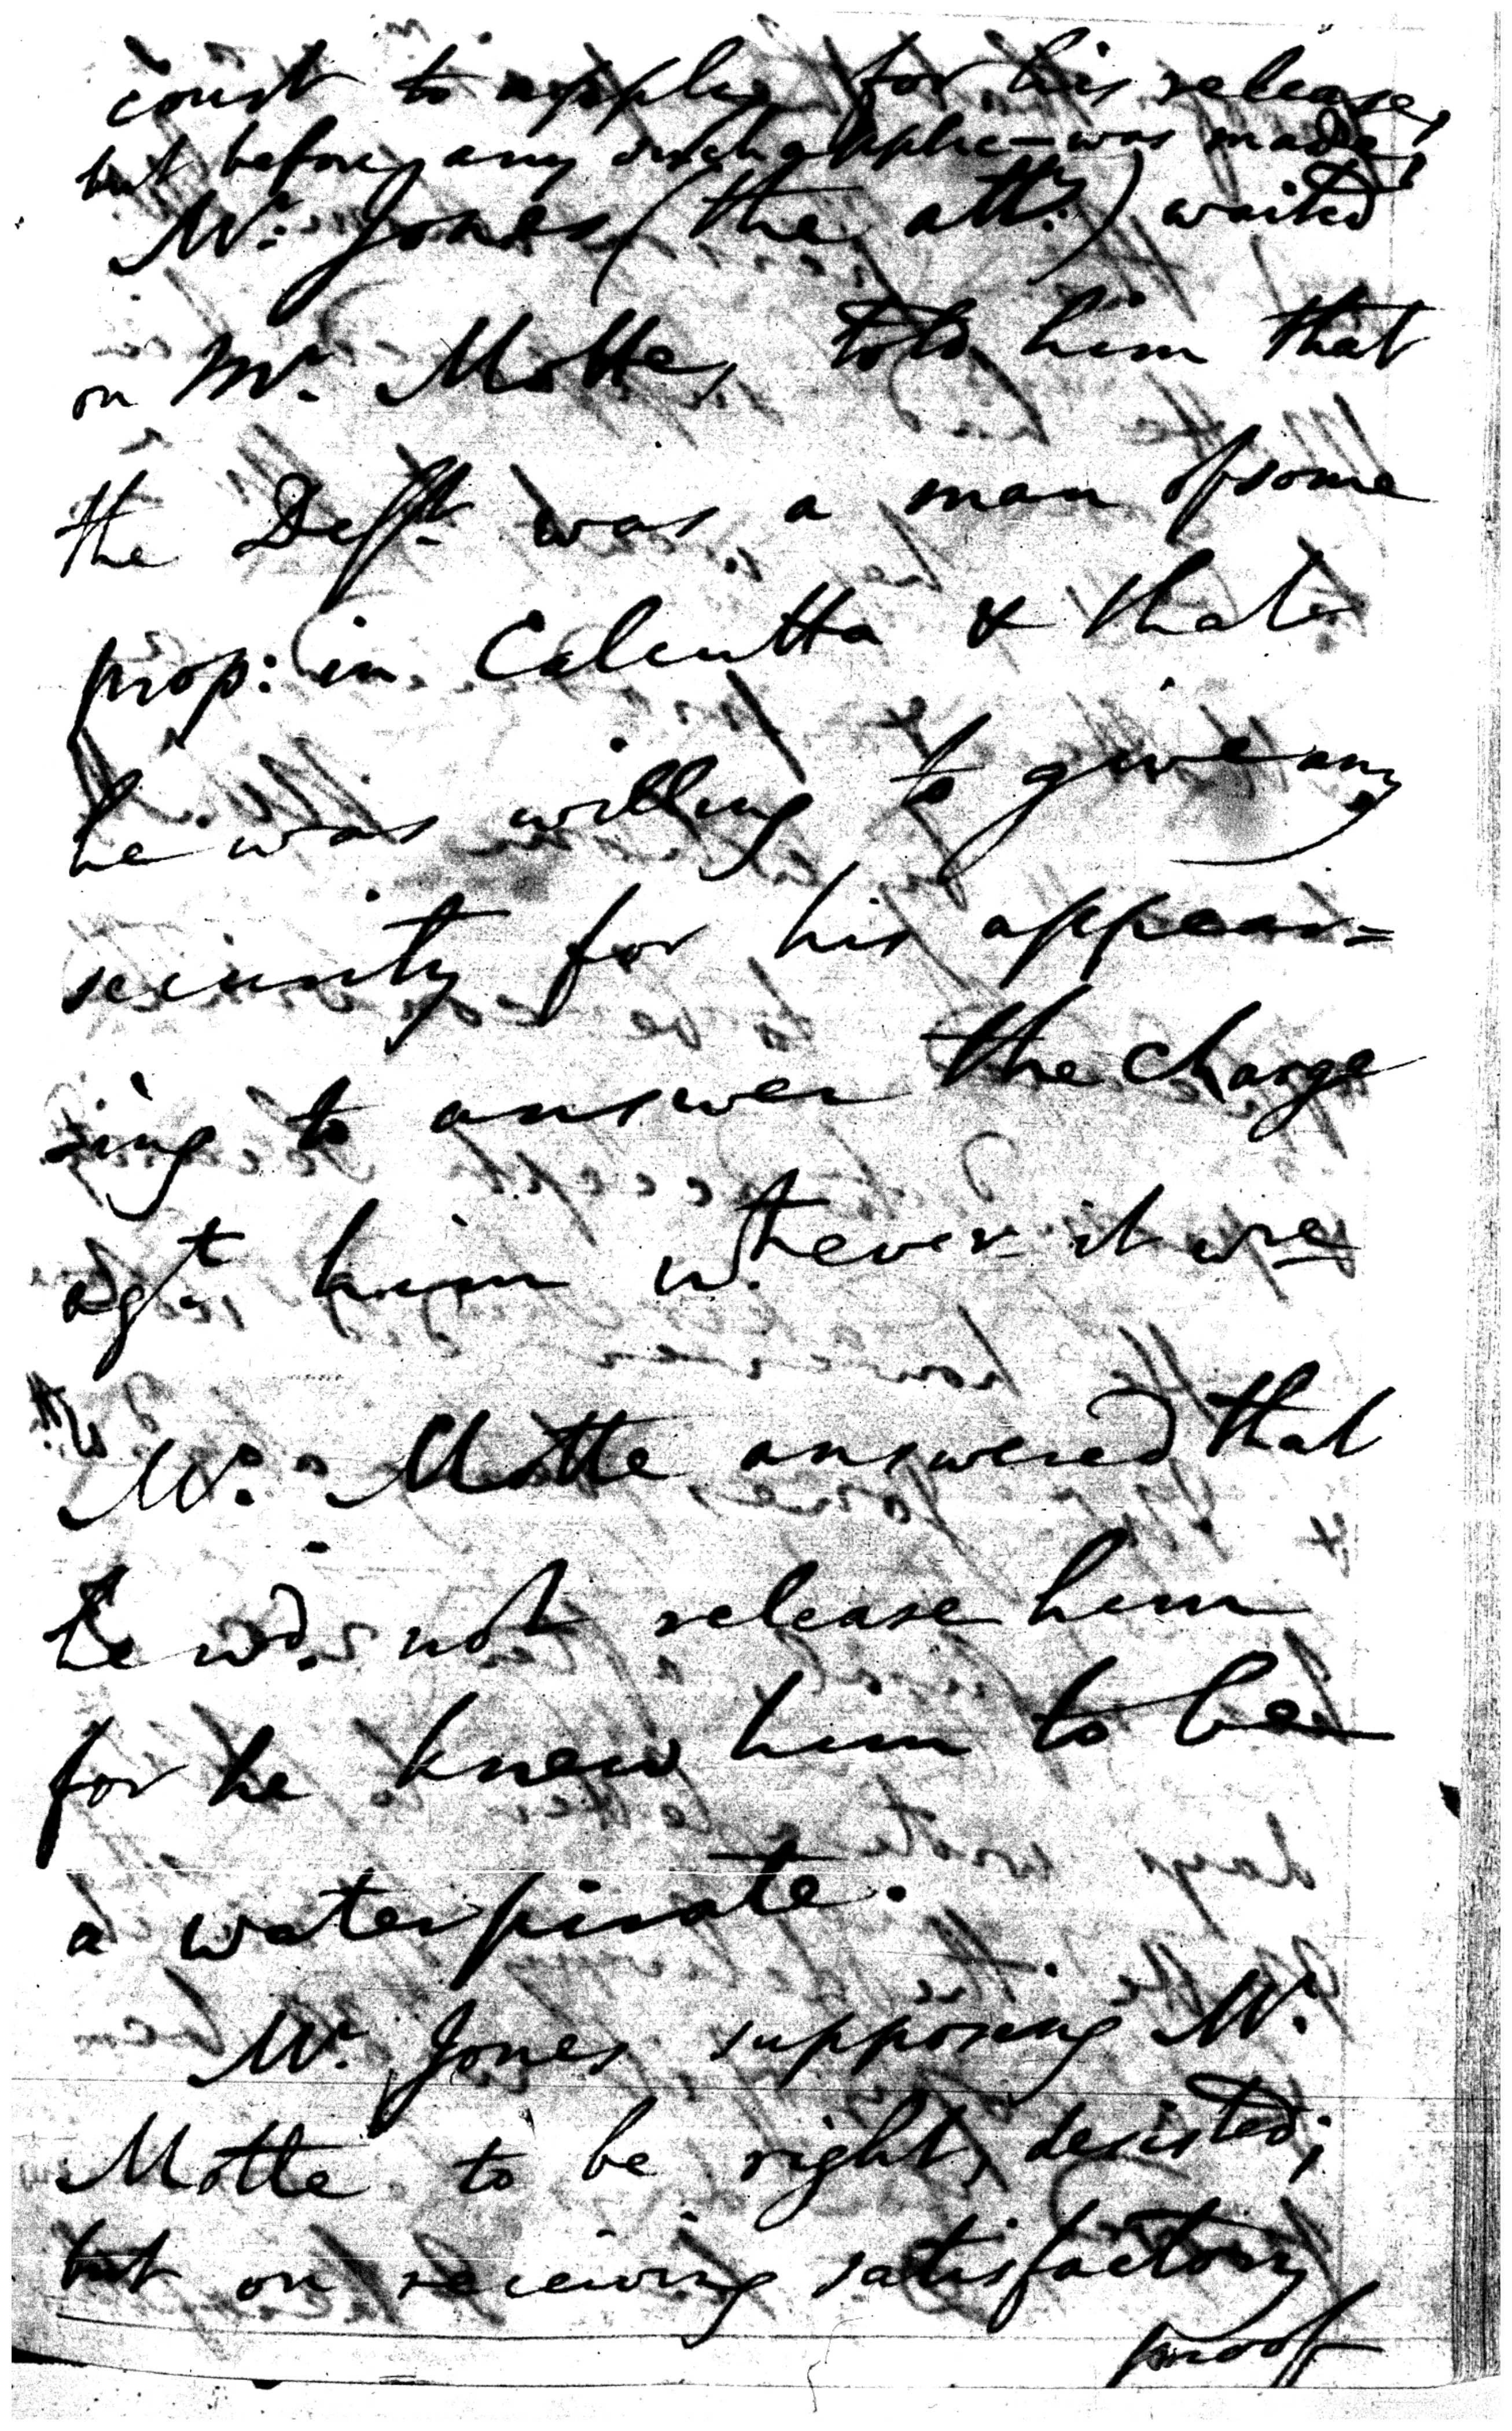 court to apply for his release,
but before any such applic— was made,
Mr. Jones (the atty.) waited
on Mr. Motte, told him that
the Defft. was a man of some
prop: in Calcutta & that
he was willing to give any
security for his appear=
=ing to answer the charge
agt. him wtever it were
Mr. Motte answered that
he wd. not release him
for he knew him to be
a water pirate.
Mr. Jones supposing Mr.
Motte to be right, desisted;
but on receiving satisfactory
proof